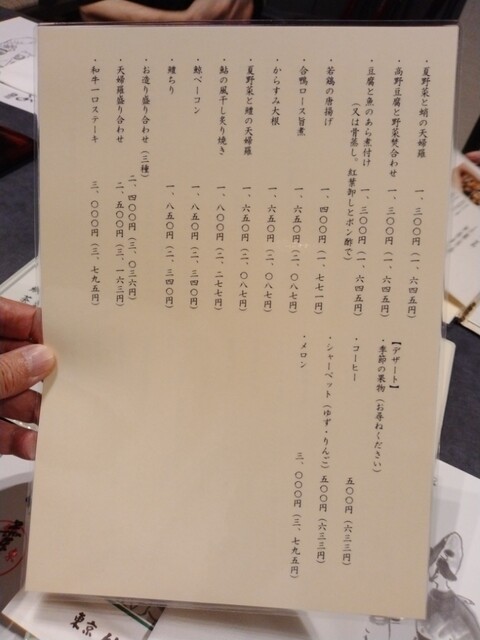 ・夏野菜と蛸の天婦羅　一、三〇〇円（一、六四五円）
・高野豆腐と野菜焚合わせ　一、三〇〇円（一、六四五円）
・豆腐と魚のあら煮付け　一、三〇〇円（一、六四五円）
（又は骨蒸し。紅葉卸しとポン酢で）
・若鶏の唐揚げ　一、四〇〇円（一、七七一円）
・合鴨ロース旨煮　一、六五〇円（二、〇八七円）
・からすみ大根　一、六五〇円（二、〇八七円）
・夏野菜と鱧の天婦羅　一、六五〇円（二、〇八七円）
・鮎の風干し炙り焼き　一、八〇〇円（二、二七七円）
・鯨ベーコン　一、八五〇円（二、三四〇円）
・鱧ちり　一、八五〇円（二、三四〇円）
・お造り盛り合わせ（三種）　二、四〇〇円（三、〇三六円）
・天婦羅盛り合わせ　二、五〇〇円（三、一六三円）
・和牛一口ステーキ　三、〇〇〇円（三、七九五円）
【デザート】
・季節の果物（お尋ねください）
・コーヒー　五〇〇円（六三三円）
・シャーベット（ゆず・りんご）　五〇〇円（六三三円）
・メロン　三、〇〇〇円（三、七九五円）
東京